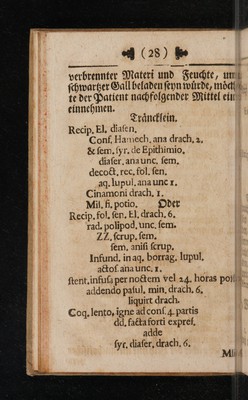 (28)
verbrennter Materi und Feuchte, un
schwartzer Gall beladen seyn würde, möch
te der Patient nachfolgender Mittel ein
einnehmen.
Träncklein.
Recip. El. diasen,
Conf. Hamech, ana drach. 2.
& sem. syr. de Epithimio.
diaser. ana unc. sem.
decoct. rec. fol. sen.
aq. lupul. ana unc 1.
Cinamoni drach. 1.
Mil. fi. potio. Oder
Recip. fol. sen. El. drach. 6.
rad. polipod, unc. sem.
ZZ. scrup. sem.
sem. anisi scrup.
Infund. in aq. borrag. lupul.
actos. ana unc. 1.
stent, infusa per noctem vel 24. horas pos
addendo pasul. min. drach. 6.
liquirt drach.
Coq. lento, igne ad cons 4. partis
dd. facta forti expres.
adde
syr. diaser, drach. 6.